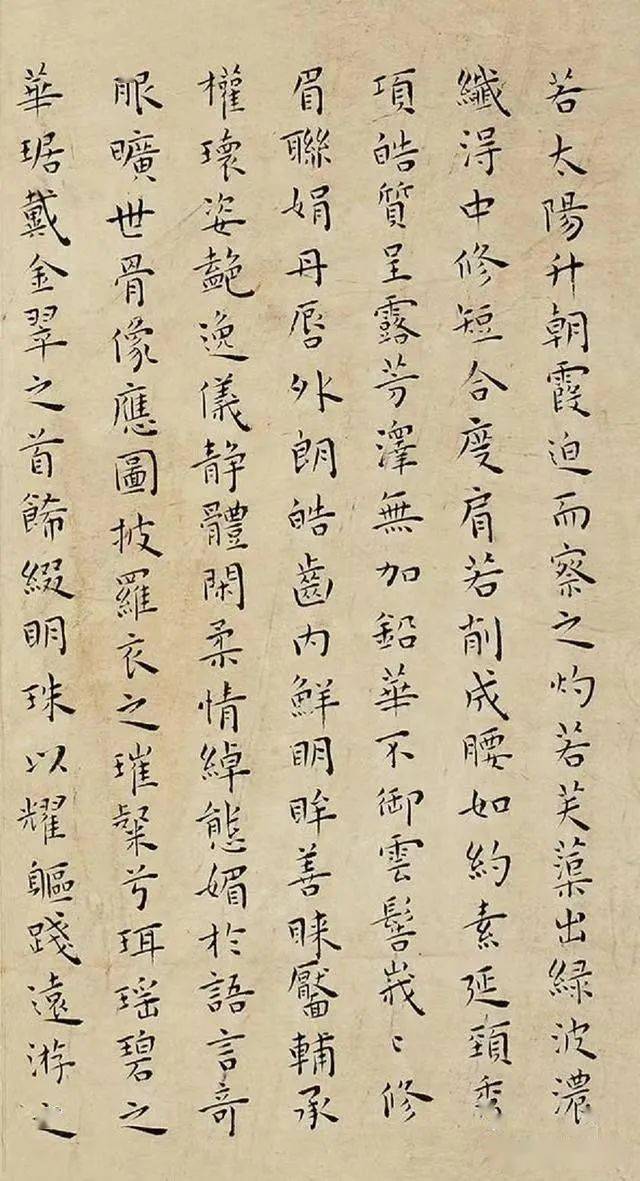 若太陽升朝霞迫而察之灼若芙蕖出緑波濃
纖淂中修短合度肩若削成腰如約素延頸秀
項皓質呈露芳澤無加鉛華不御雲髻峩〻修
眉聯娟丹唇外朗皓齒内鮮明眸善睞靨輔承
權瓌姿艶逸儀静體閑柔情綽態媚於語言奇
服曠世骨像應圖披羅衣之璀粲兮珥瑶碧之
華琚戴金翠之首餙綴明珠以耀軀踐遠游之